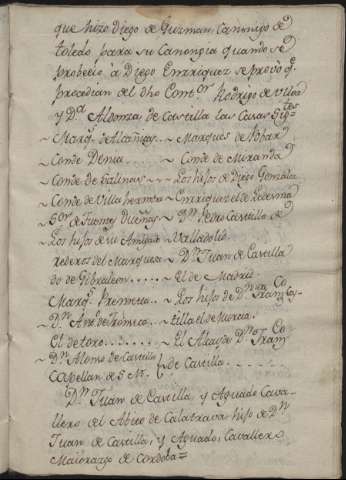 que hizo Diego de Guzman Canonigo de
toledo para su Canongia quando se
probeeio à Diego Enrriquez se provo qe
procedian del dho Contor Rodrigo de
y Da Aldonza de Castilla las Casas Sigtes
~ Marqs de Alcañizas ~ Marques de
~ Conde Denia ~ Conde de Miranda
~ Conde de Salinas ~ Los hijos de Diego Gonzalez
~ Conde de Villa hermosa ~ Enrriquez el de Ledesma
~ Sor de Fuentes Dueñas ~ Dn Pedro Castillo de
~ Los hijos de Valladolid
rederos del Marquesa ~ Dn Juan de Castilla
do de Gibraleon ..... ~ El de Madrid
Marqs ~ Los hijos de Dn Franco Cas
~ Dn Anto de ~ tilla el de Murcia
El de toro ... ~ El Alcayde Dn Franco
~ Dn Alonso de Castilla de Castilla
Capellan de S. M.
Dn Juan de Castilla, y Aguado Cava-
llero del Abito de Calatrava hijo de Dn
Juan de Castilla, y Aguado, Cavallero
Maiorazgo de Cordoba=